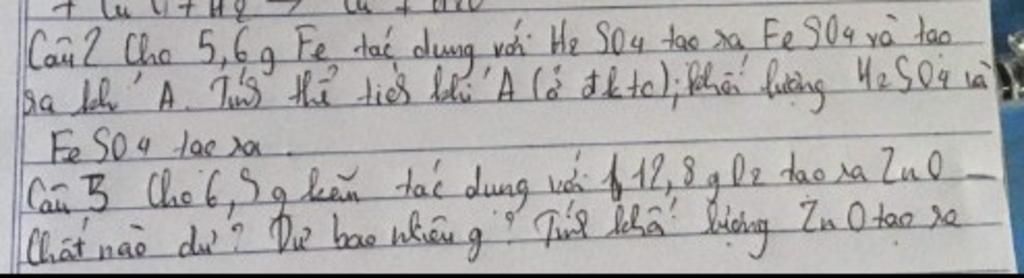 + Cu
Câu 2 Cho 5,6 g Fe tác dụng với H2 SO4 tạo ra Fe SO4 và tạo
ra khí A. Tính thể tích khí A (ở đktc); khối lượng H2SO4 và
Fe SO4 tạo ra
Câu 3 Cho 6,5 g kẽm tác dụng với 12,8 g O2 tạo ra ZnO
Chất nào dư? Dư bao nhiêu g? Tính khối lượng ZnO tạo ra